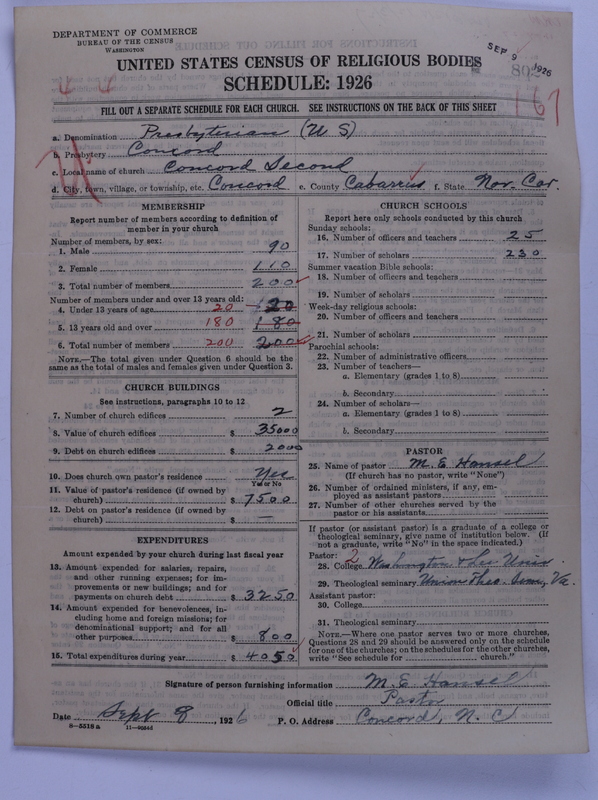 DEPARTMENT OF COMMERCE
BUREAU OF THE CENSUS
WASHINGTON
SEP 9 1926
UNITED STATES CENSUS OF RELIGIOUS BODIES
SCHEDULE: 1926
167
FILL OUT A SEPARATE SCHEDULE FOR EACH CHURCH. SEE INSTRUCTIONS ON THE BACK OF THIS SHEET
a. Denomination Presbyterian (U S)
b. Presbytery Concord
c. Local name of church Concord Second
d. City, town, village, or township, etc. Concord e. County Cabarrus f. State Nor. Car.
MEMBERSHIP
Report number of members according to definition of
member in your church
Number of members, by sex:
1. Male 90
2. Female 110
3. Total number of members 200
Number of members under and over 13 years old:
4. Under 13 years of age 20 20
5. 13 years old and over 180 180
6. Total number of members 200 200
NOTE.—The total given under Question 6 should be
the same as the total of males and females given under Question 3.
CHURCH BUILDINGS
See instructions, paragraphs 10 to 12
7. Number of church edifices 2
8. Value of church edifices $ 35000
9. Debt on church edifices $ 2000
10. Does church own pastor's residence Yes
Yes or No
11. Value of pastor's residence (if owned by
church) $ 7500
12. Debt on pastor's residence (if owned by
church) $ —
EXPENDITURES
Amount expended by your church during last fiscal year
13. Amount expended for salaries, repairs,
and other running expenses; for im-
provements or new buildings; and for
payments on church debt $ 3250
14. Amount expended for benevolences, in-
cluding home and foreign missions; for
denominational support; and for all
other purposes $ 800
15. Total expenditures during year $ 4050
CHURCH SCHOOLS
Report here only schools conducted by this church
Sunday schools:
16. Number of officers and teachers 25
17. Number of scholars 230
Summer vacation Bible schools:
18. Number of officers and teachers
19. Number of scholars
Week-day religious schools:
20. Number of officers and teachers
21. Number of scholars
Parochial schools:
22. Number of administrative officers
23. Number of teachers—
a. Elementary (grades 1 to 8)
b. Secondary
24. Number of scholars—
a. Elementary (grades 1 to 8)
b. Secondary
PASTOR
25. Name of pastor M. E. Hansel
(If church has no pastor, write "None")
26. Number of ordained ministers, if any, em-
ployed as assistant pastors
27. Number of other churches served by the
pastor or his assistants
If pastor (or assistant pastor) is a graduate of a college or
theological seminary, give name of institution below. (If
not a graduate, write "No" in the space indicated.)
Pastor:
28. College Washington & Lee Univ.
29. Theological seminary Union Theo. Sem., Va.
Assistant pastor:
30. College
31. Theological seminary
NOTE.—Where one pastor serves two or more churches,
Questions 28 and 29 should be answered only on the schedule
for one of the churches; on the schedules for the other churches,
write "See schedule for church."
Signature of person furnishing information M. E. Hansel
Official title Pastor
Date Sept 8, 1926 P. O. Address Concord, N. C
8—5518 a 11—9564d